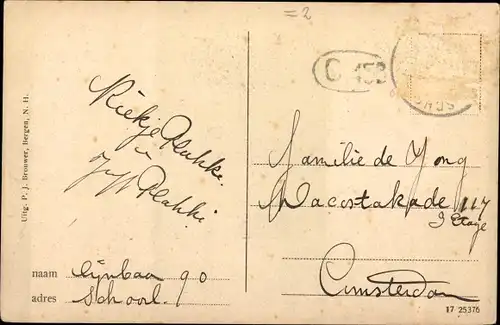 =2
C 152
Uitg. P. J. Brouwer, Bergen, N. H.
Riekje Plukke.
u
Plukke
Familie de Jong
Dacostakade 117
3 Etage
Amsterdam
naam Lijnbaa 90
adres School.
17 25376